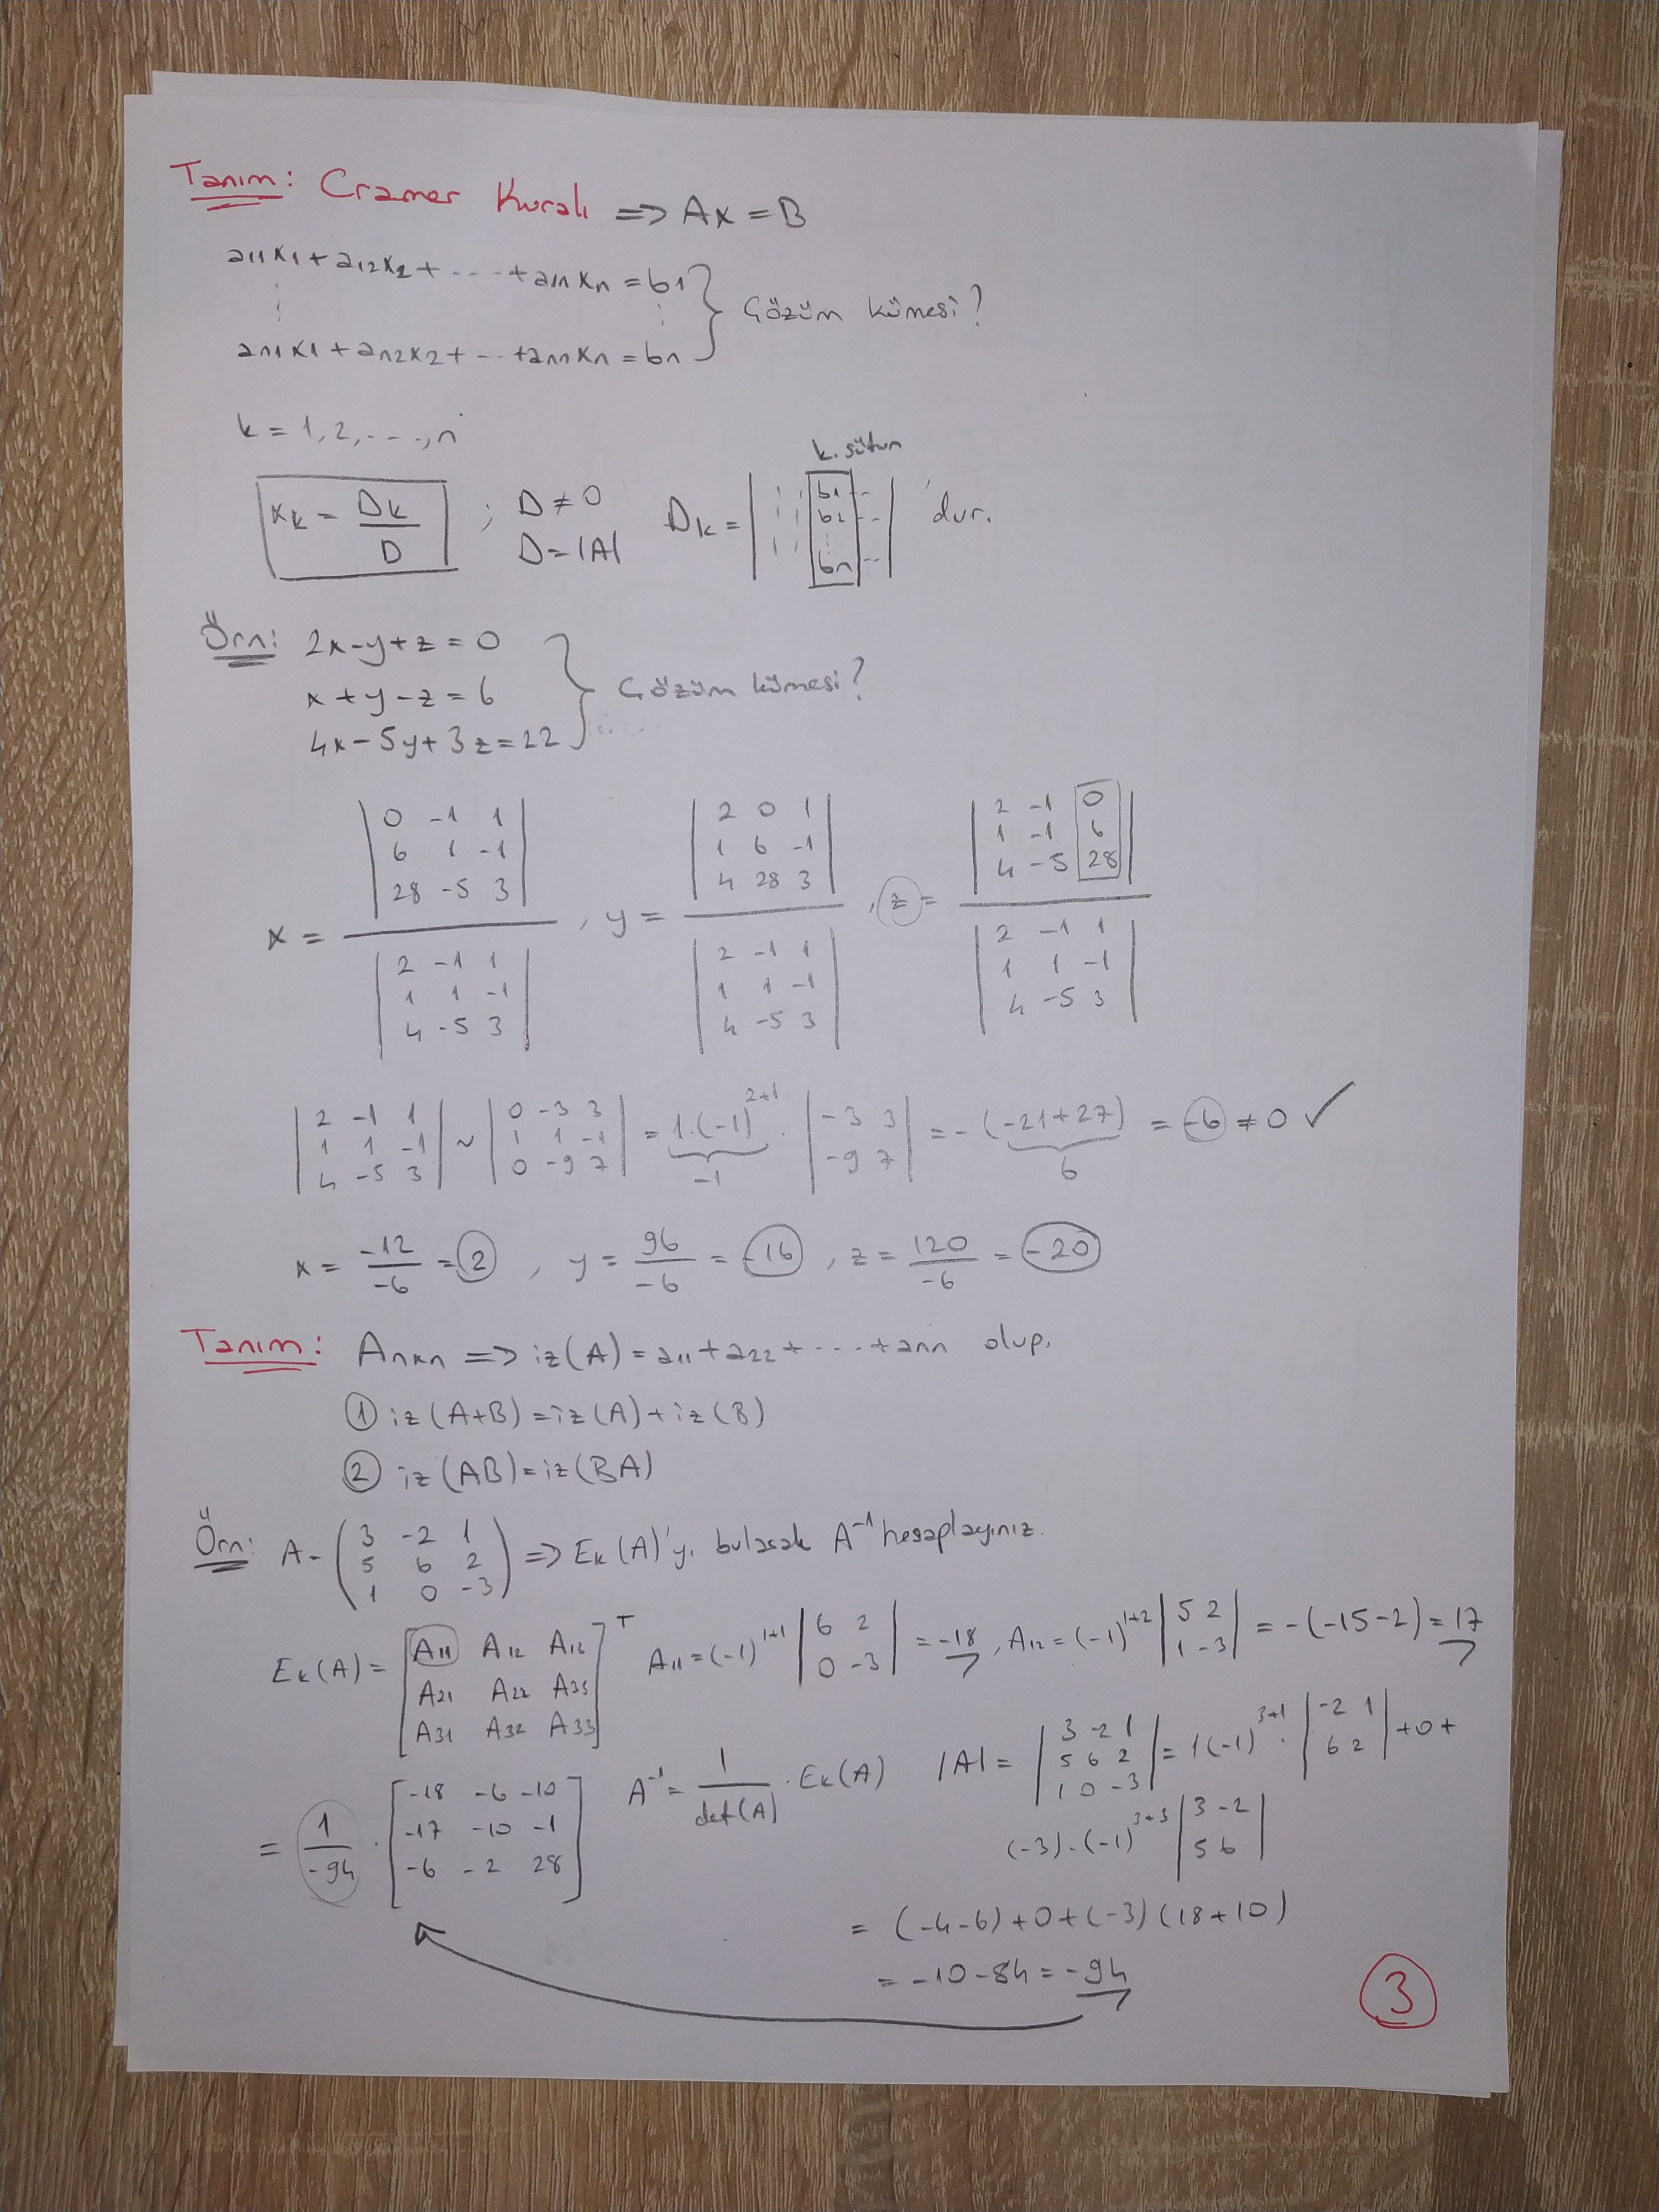 Tanım: Cramer Kuralı ⇒ Ax = B
a11x1 + a12x2 + ... + a1nxn = b1
⋮ ⋮ } Çözüm kümesi?
an1x1 + an2x2 + ... + annxn = bn
k = 1, 2, ..., n
xk = Dk / D ; D ≠ 0 D = |A| Dk = | ⋮ ⋮ b1 b2 ⋮ bn ... | k. sütun 'dur.
Örn: 2x - y + z = 0
x + y - z = 6 } Çözüm kümesi?
4x - 5y + 3z = 22
x = |0 -1 1; 6 1 -1; 28 -5 3| / |2 -1 1; 1 1 -1; 4 -5 3| , y = |2 0 1; 1 6 -1; 4 28 3| / |2 -1 1; 1 1 -1; 4 -5 3| , z = |2 -1 0; 1 -1 6; 4 -5 28| / |2 -1 1; 1 1 -1; 4 -5 3|
|2 -1 1; 1 1 -1; 4 -5 3| ~ |0 -3 3; 1 1 -1; 0 -9 7| = 1.(-1)^2+1 . |-3 3; -9 7| = -(-21+27) = -6 ≠ 0 ✓
-1 6
x = -12/-6 = 2 , y = 96/-6 = -16 , z = 120/-6 = -20
Tanım: Anxn ⇒ iz(A) = a11 + a22 + ... + ann olup,
① iz(A+B) = iz(A) + iz(B)
② iz(AB) = iz(BA)
Örn: A = (3 -2 1; 5 6 2; 1 0 -3) ⇒ Ek(A)'yı bularak A^-1 hesaplayınız.
Ek(A) = [A11 A12 A12; A21 A22 A23; A31 A32 A33]^T A11 = (-1)^1+1 |6 2; 0 -3| = -18, A12 = (-1)^1+2 |5 2; 1 -3| = -(-15-2) = 17
= 1/-94 . [-18 -6 -10; -17 -10 -1; -6 -2 28] A^-1 = 1/det(A) . Ek(A) |A| = |3 -2 1; 5 6 2; 1 0 -3| = 1(-1)^3+1 . |-2 1; 6 2| + 0 +
(-3).(-1)^3+3 |3 -2; 5 6|
= (-4-6) + 0 + (-3)(18+10)
= -10 - 84 = -94
3